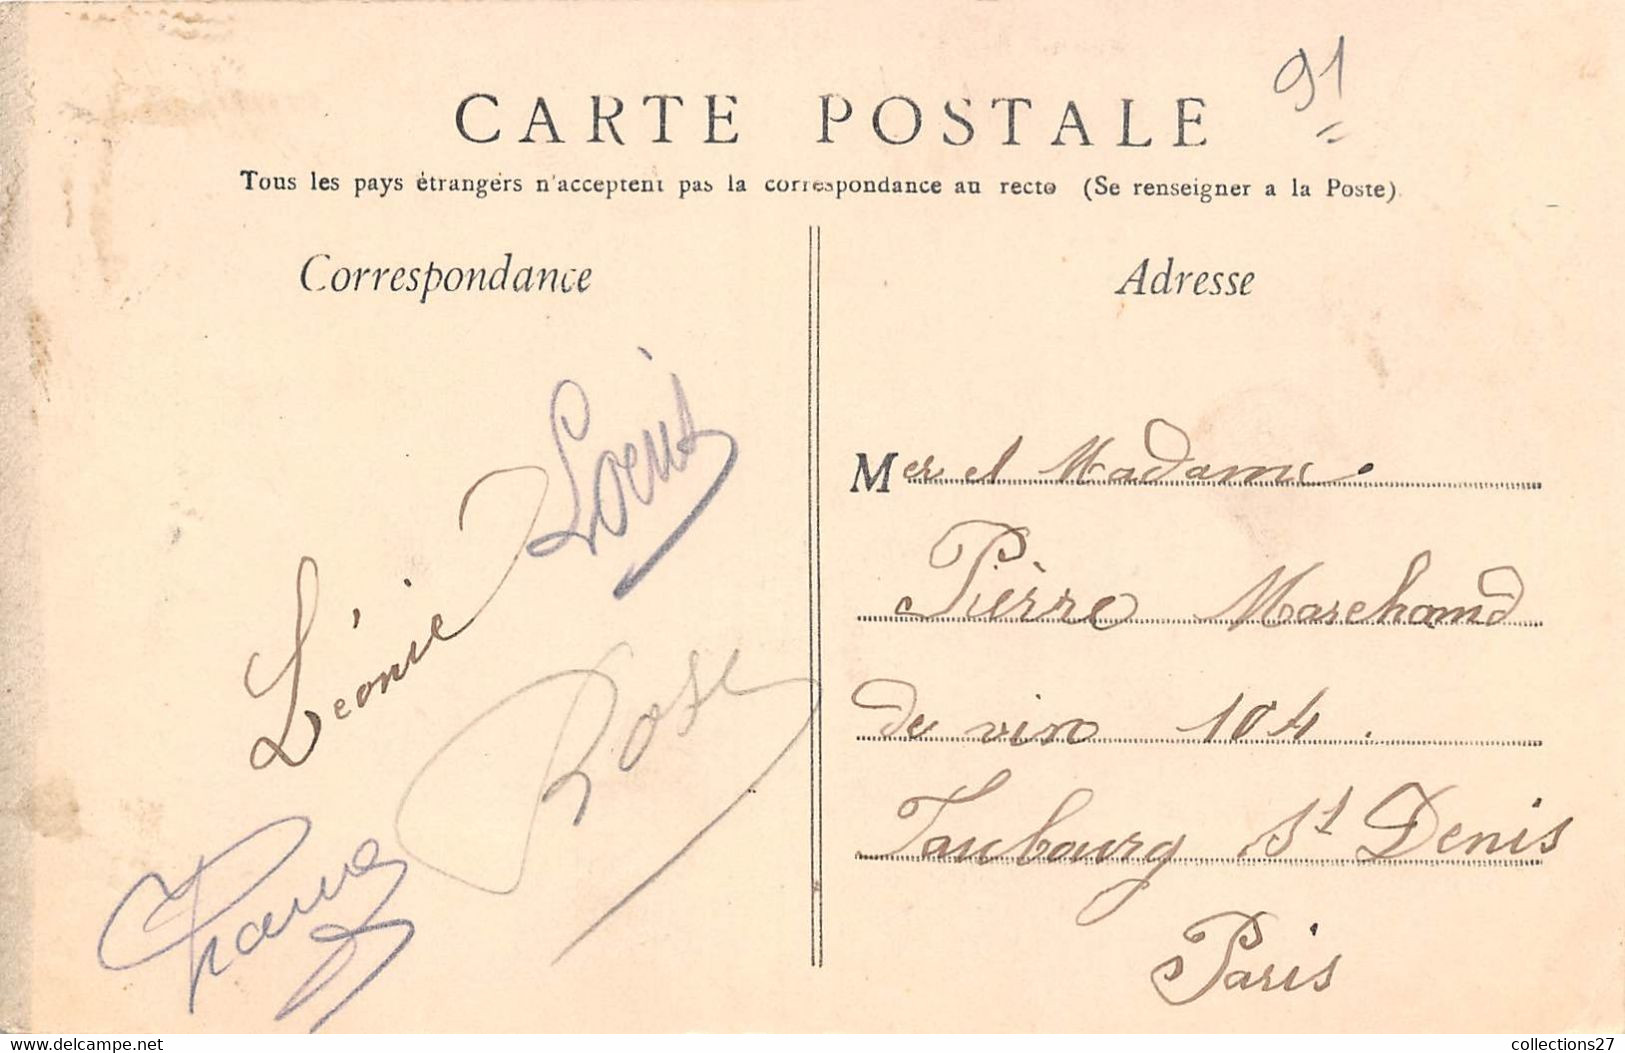 91
CARTE POSTALE
Tous les pays étrangers n'acceptent pas la correspondance au recto (Se renseigner a la Poste)
Correspondance
Adresse
Louis
Léonie
Rose
Mer et Madame
Pièrre Marchand
de vin 104.
Faubourg St Denis
Paris
www.delcampe.net
collections27